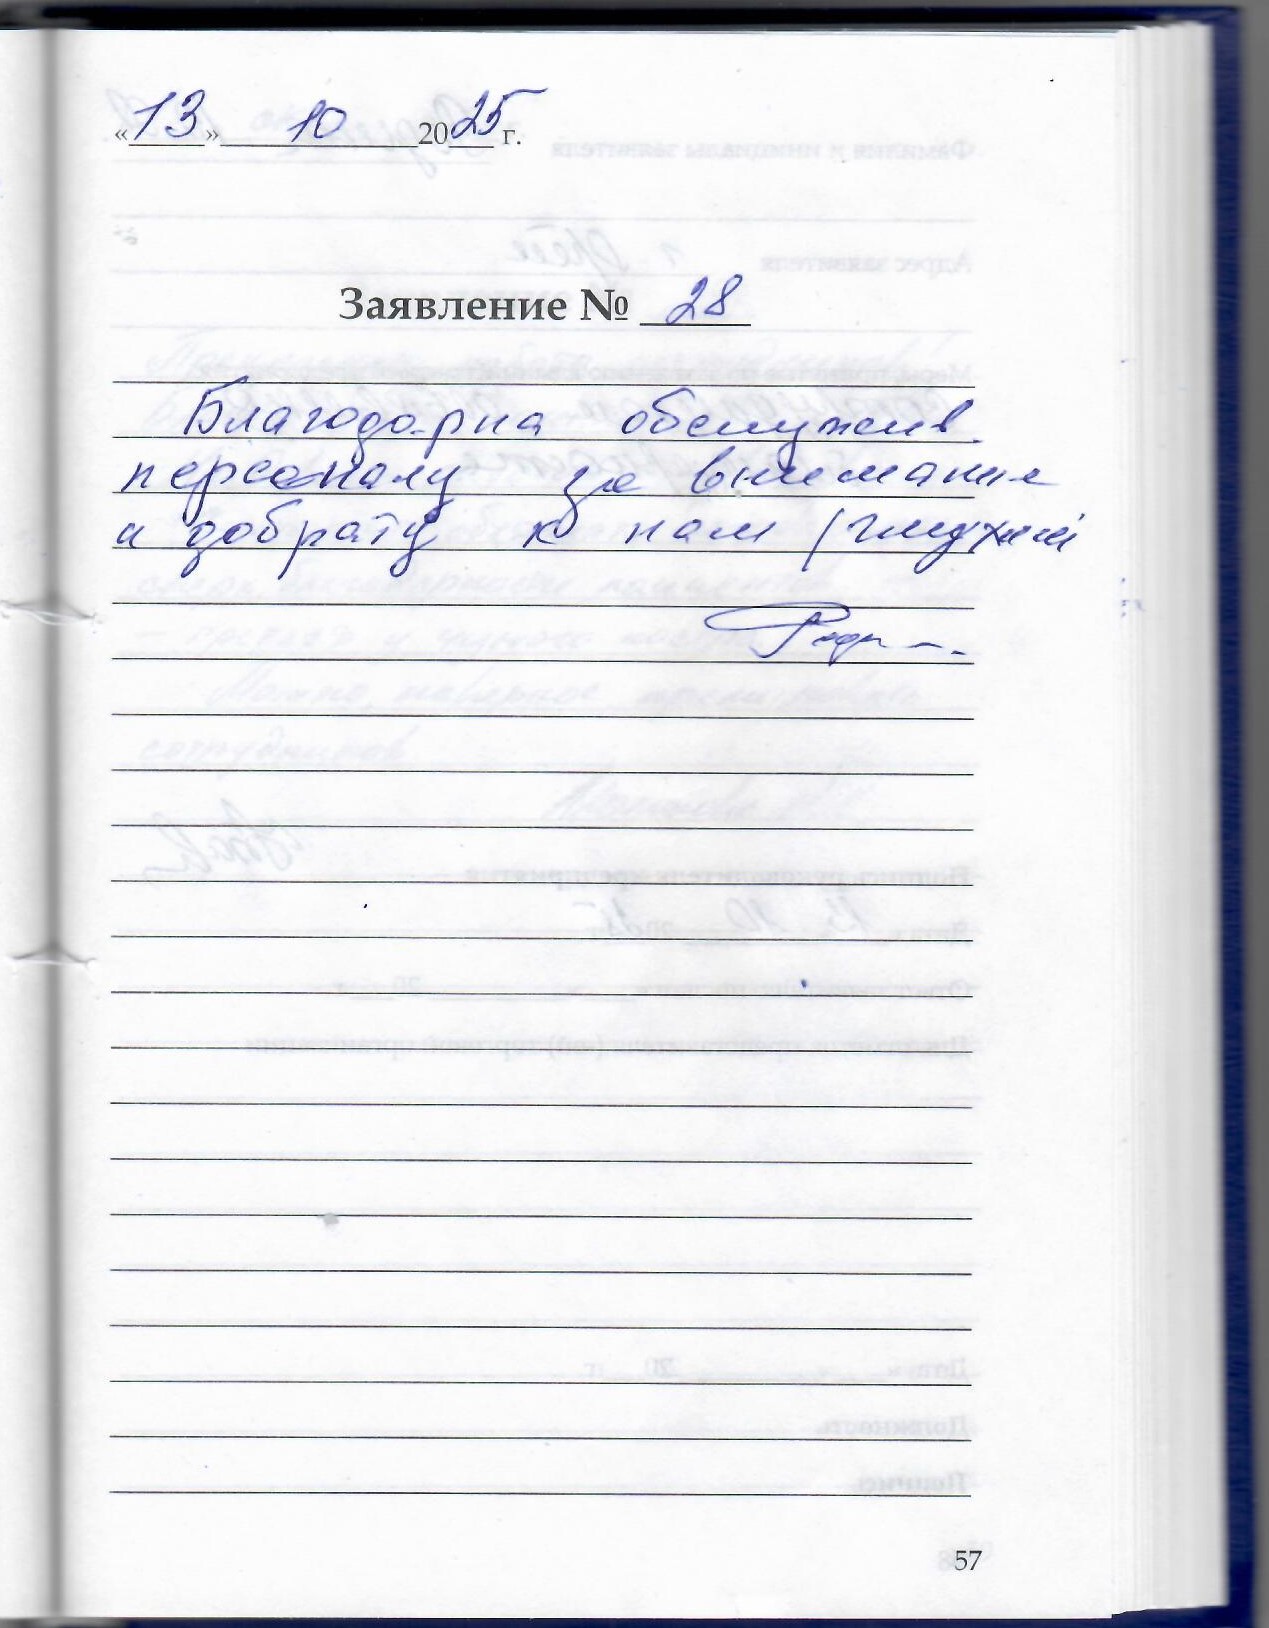 «13» 10 2025 г.
Заявление № 28
Благодарна обслужив.
персоналу за внимание
и доброту к нам (глухим
57